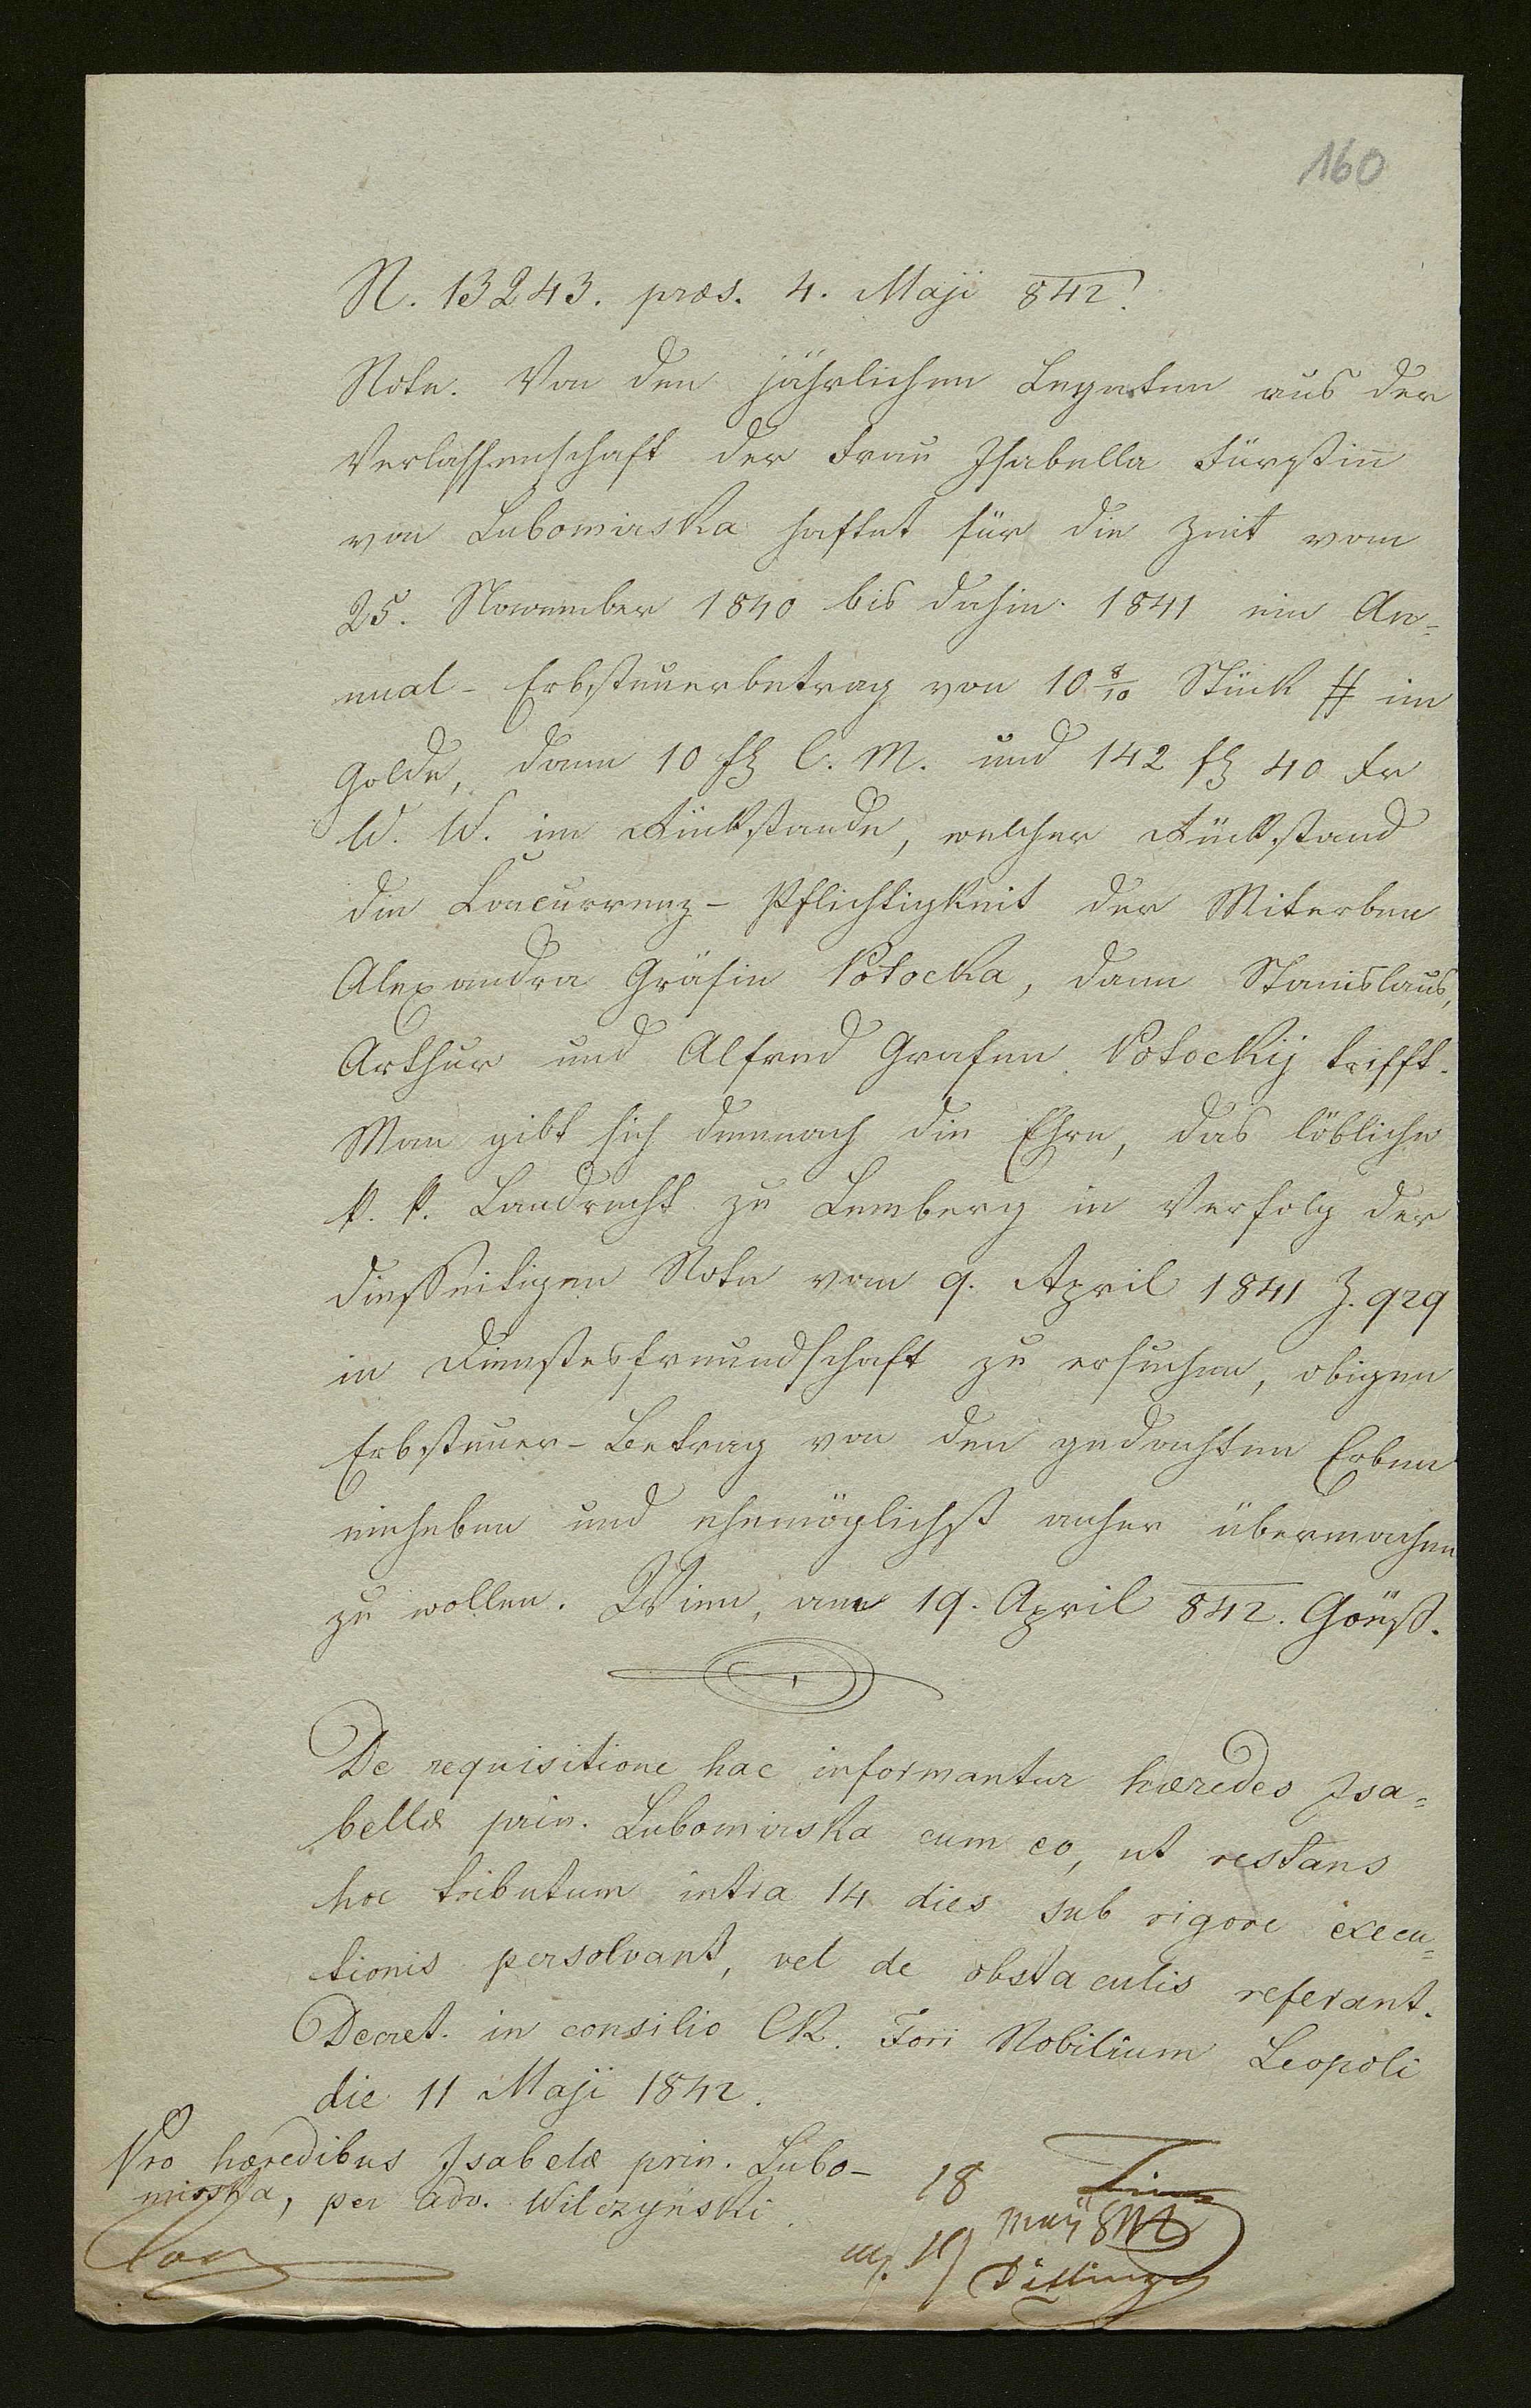 160
N. 13243. præs. 4. Maji 842.
Note. Von den jährlichen Legaten aus der
Verlassenschaft der Frau Isabella Fürstinn
von Lubomirska haftet für die Zeit vom
25. November 1840 bis dahin 1841 ein An=
nual-Erbsteuerbetrag von 10 8/10 Stück # im
Golde, dann 10 f C. M. und 142 f 40 Xr
W. W. im Rückstande, welcher Rückstand
die Concurrenz-Pflichtigkeit der Miterben
Alexandra Gräfin Potocka, dann Stanislaus,
Arthur und Alfred Grafen Potockij trifft.
Man gibt sich demnach die Ehre, das löbliche
k. k. Landrecht zu Lemberg in Verfolg der
dießseitigen Note vom 9. April 1841 Z. 929
in Dienstesfreundschaft zu ersuchen, obigen
Erbsteuer-Betrag von den gedachten Erben
einheben und ehemöglichst anher übermachen
zu wollen. Wien, am 19. April 842.
De requisitione hac informantur hæredes Isa=
bellæ prin. Lubomirska cum eo, ut restans
hoc tributum intra 14 dies sub rigore execu=
tionis persolvant, vel de obstaculis referant.
Decret. in consilio CR. Fori Nobilium Leopoli
die 11 Maji 1842.
Pro hæredibus Isabelæ prin. Lubo-
mirska, per adv. Wilczyński.
18
Maii 842
19